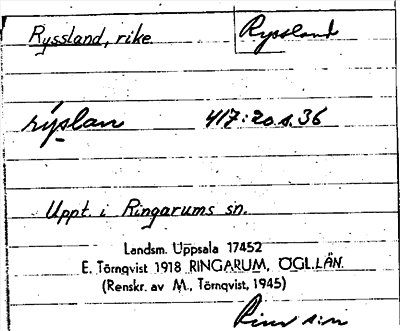 Ryssland, rike
Ryssland
rýslan 417:20 s. 36
Uppt. i Ringarums sn.
Landsm. Uppsala 17452
E. Törnqvist 1918 RINGARUM, ÖGL.LÄN.
(Renskr. av M. Törnqvist, 1945)